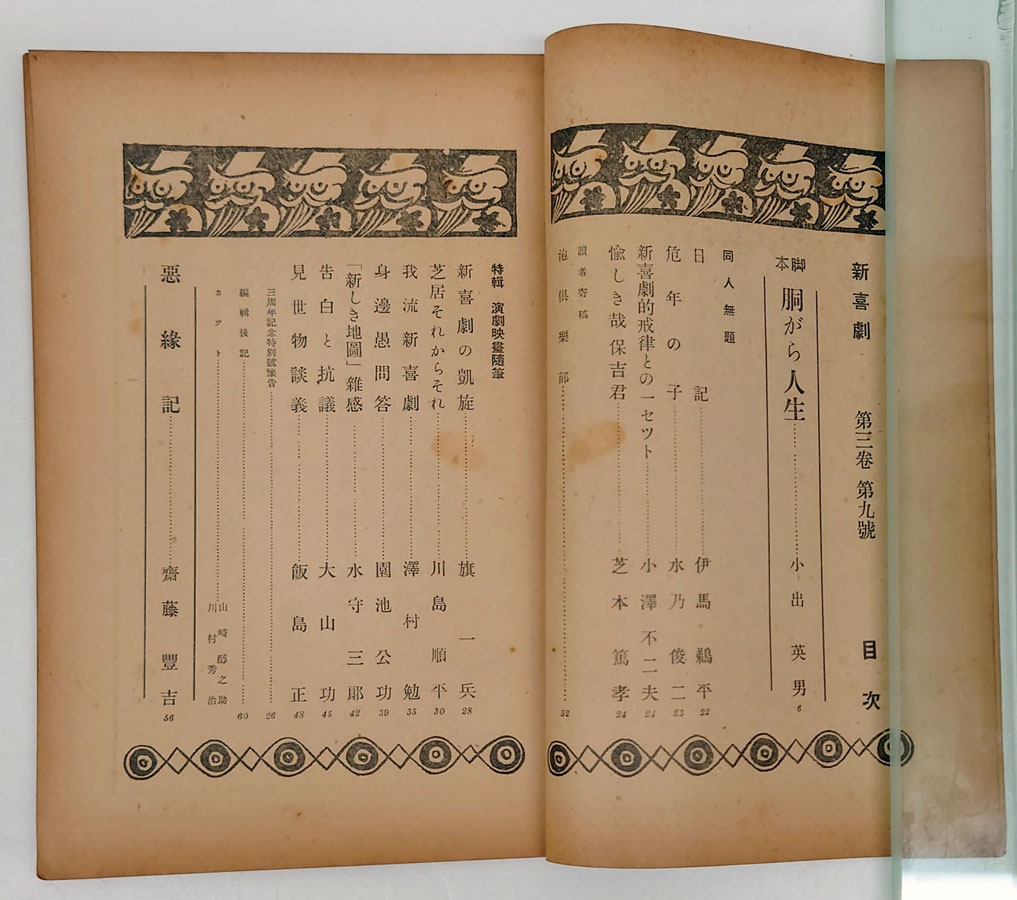 新喜劇　第三巻　第九號　目次
脚本　胴がら人生……小出英男 6
同人無題
日記……伊馬鵜平 22
危年の子……水乃俊二 23
新喜劇的戒律との一セツト……小澤不二夫 24
愉しき哉保吉君……芝本篤孝 24
讀者寄稿
池俱樂部……52
特輯　演劇映畫隨筆
新喜劇の凱旋……旗一兵 28
芝居それからそれ……川島順平 30
我流新喜劇……澤村勉 35
身邊愚問答……園池公功 39
「新しき地圖」雜感……水守三郎 42
告白と抗議……大山功 45
見世物談義……飯島正 48
三周年記念特別號豫告……26
編輯後記……60
カット……山崎醇之助
川村秀治
惡緣記……齋藤豐吉 56